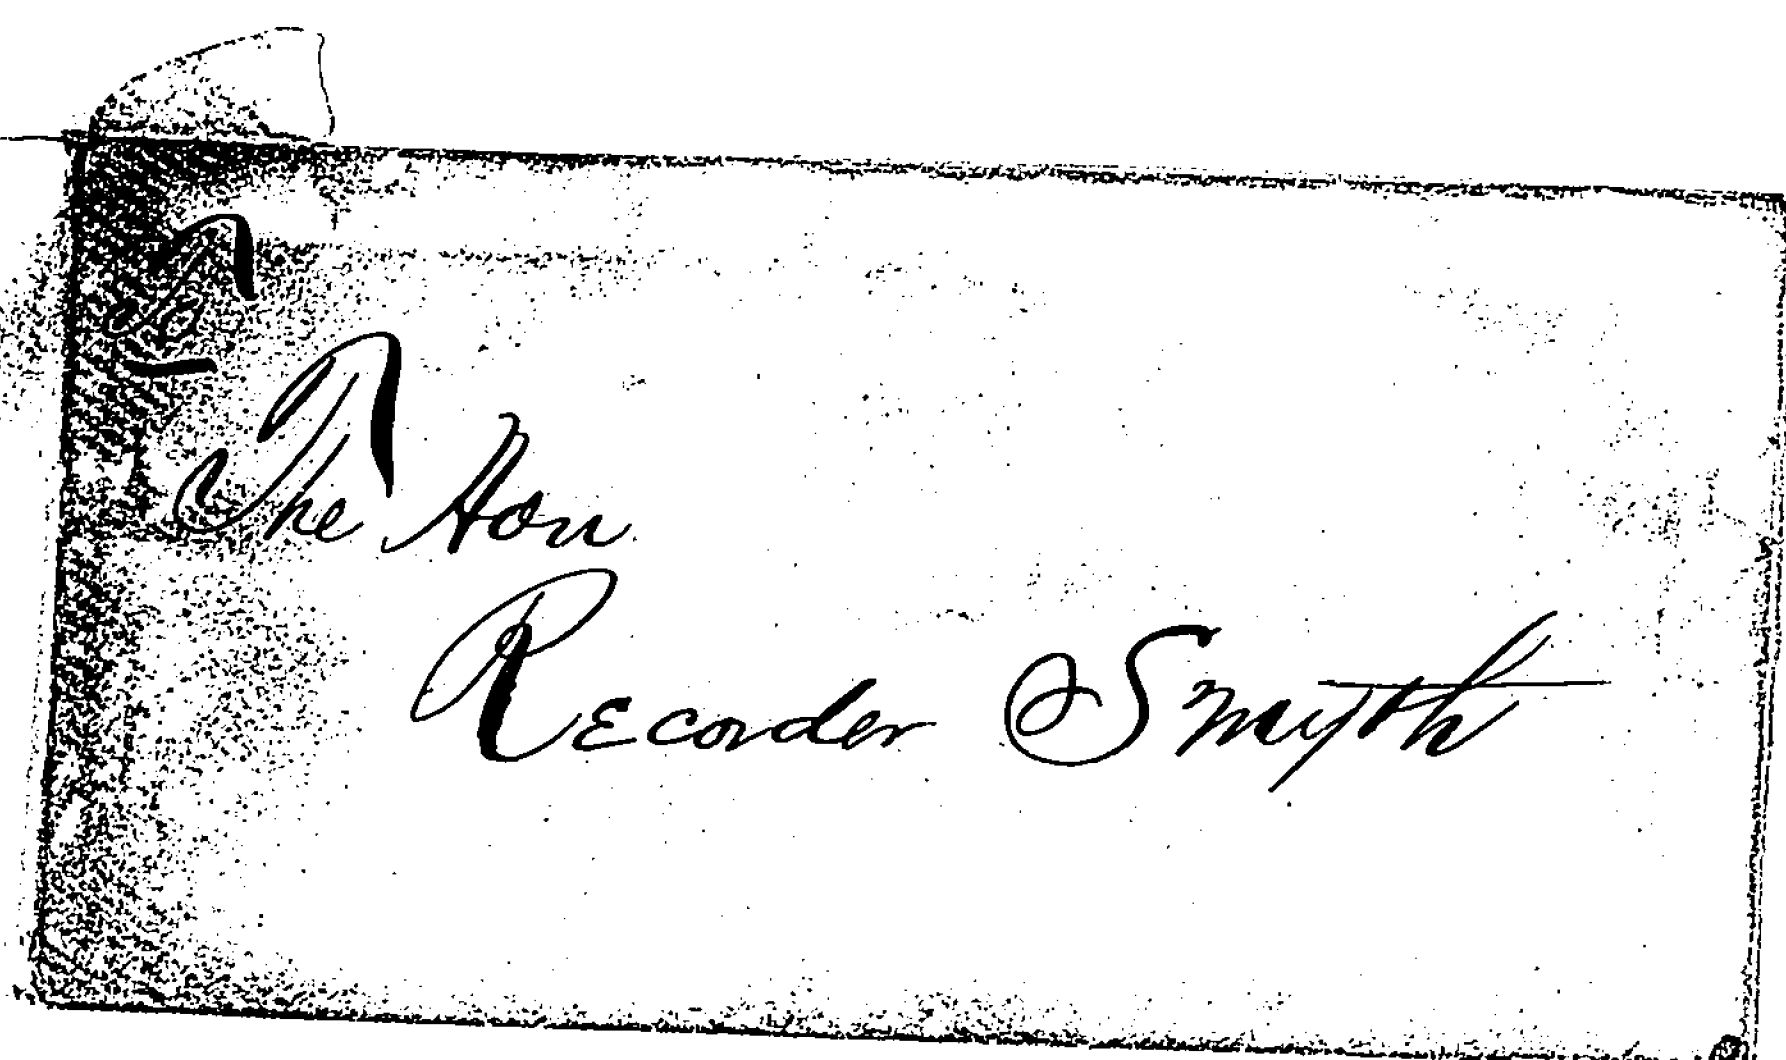 To
The Hon
Recorder Smyth